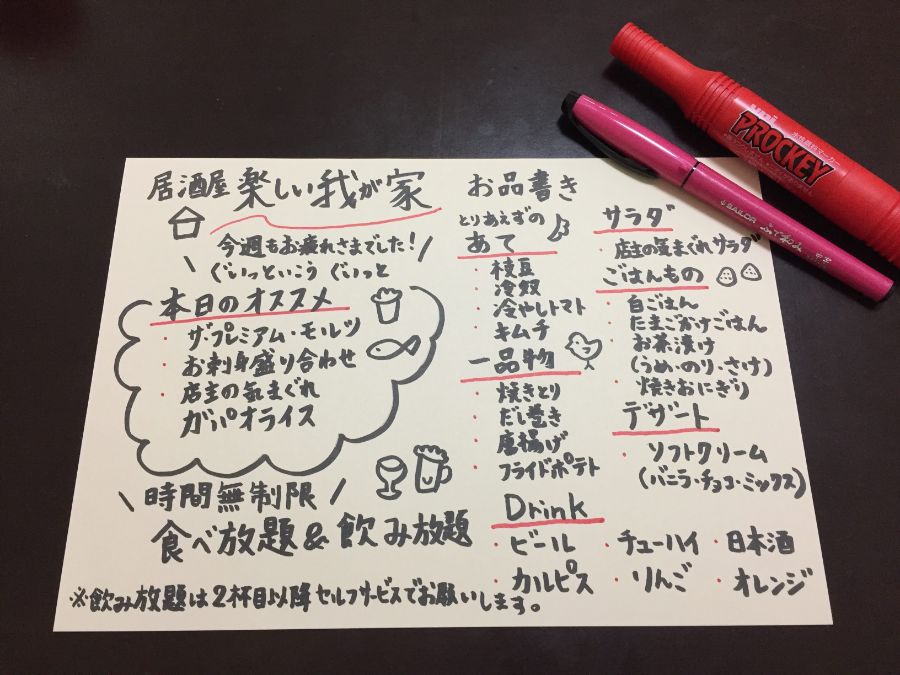 居酒屋 楽しい我が家
今週もお疲れさまでした!
ぐいっといこう ぐいっと
本日のオススメ
・ザ・プレミアム・モルツ
・お刺身盛り合わせ
・店主の気まぐれ
ガパオライス
\時間無制限/
食べ放題&飲み放題
※飲み放題は2杯目以降セルフサービスでお願いします。
お品書き
とりあえずの
あて
・枝豆
・冷奴
・冷やしトマト
・キムチ
一品物
・焼きとり
・だし巻き
・唐揚げ
・フライドポテト
サラダ
・店主の気まぐれサラダ
ごはんもの
・白ごはん
・たまごかけごはん
・お茶漬け
(うめ・のり・さけ)
・焼きおにぎり
デザート
・ソフトクリーム
(バニラ・チョコ・ミックス)
Drink
・ビール ・チューハイ ・日本酒
・カルピス ・りんご ・オレンジ
uni
PROCKEY
水性顔料マーカー
SAILOR ふで和み 中字